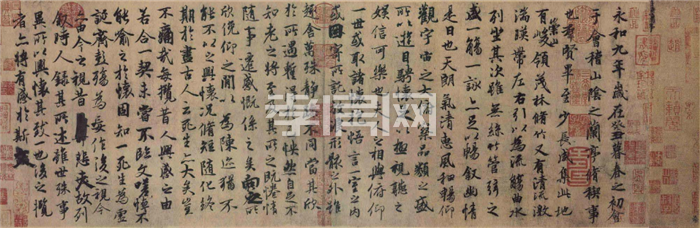 永和九年歲在癸丑暮春之初會
于會稽山陰之蘭亭脩禊事
也群賢畢至少長咸集此地
有峻領茂林脩竹又有清流激
崇山
湍暎帶左右引以為流觴曲水
列坐其次雖無絲竹管弦之
盛一觴一詠亦足以暢敘幽情
是日也天朗氣清惠風和暢仰
觀宇宙之大俯察品類之盛
所以遊目騁懷足以極視聽之
娛信可樂也夫人之相與俯仰
一世或取諸懷抱悟言一室之內
或因寄所託放浪形骸之外雖
趣舍萬殊靜躁不同當其欣
於所遇暫得於己怏然自足不
知老之將至及其所之既惓情
隨事遷感慨係之矣向之所
欣俛仰之閒以為陳迹猶不
能不以之興懷況脩短隨化終
期於盡古人云死生亦大矣豈
不痛哉每攬昔人興感之由
若合一契未嘗不臨文嗟悼不
能喻之於懷固知一死生為虛
誕齊彭殤為妄作後之視今
亦由今之視昔悲夫故列
敘時人錄其所述雖世殊事
異所以興懷其致一也後之攬
者亦將有感於斯文
孝居网